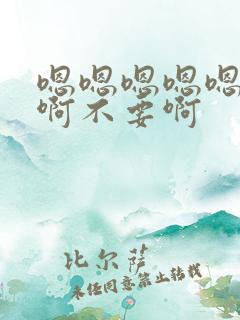 嗯嗯嗯嗯嗯
啊不要啊
比尔萨
未经同意禁止转载